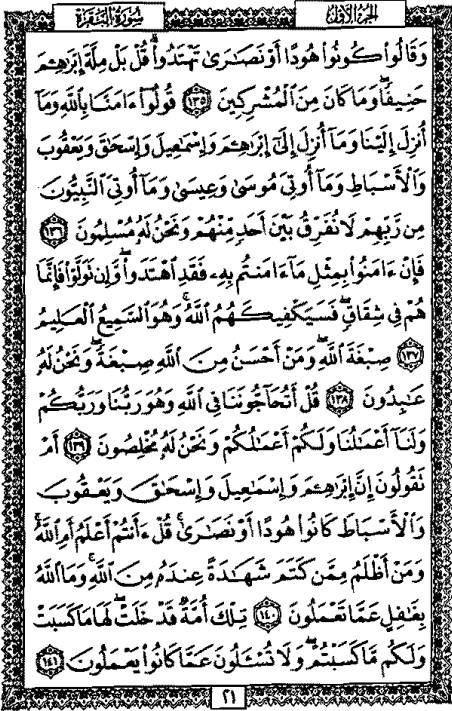 سُورَةُ البَقَرَةِ
الجُزءُ الأوّلُ
وَقَالُوا۟ كُونُوا۟ هُودًا أَوْ نَصَٰرَىٰ تَهْتَدُوا۟ۗ قُلْ بَلْ مِلَّةَ إِبْرَٰهِـۧمَ
حَنِيفًاۖ وَمَا كَانَ مِنَ ٱلْمُشْرِكِينَ ۝١٣٥ قُولُوٓا۟ ءَامَنَّا بِٱللَّهِ وَمَآ
أُنزِلَ إِلَيْنَا وَمَآ أُنزِلَ إِلَىٰٓ إِبْرَٰهِـۧمَ وَإِسْمَٰعِيلَ وَإِسْحَٰقَ وَيَعْقُوبَ
وَٱلْأَسْبَاطِ وَمَآ أُوتِىَ مُوسَىٰ وَعِيسَىٰ وَمَآ أُوتِىَ ٱلنَّبِيُّونَ
مِن رَّبِّهِمْ لَا نُفَرِّقُ بَيْنَ أَحَدٍ مِّنْهُمْ وَنَحْنُ لَهُۥ مُسْلِمُونَ ۝١٣٦
فَإِنْ ءَامَنُوا۟ بِمِثْلِ مَآ ءَامَنتُم بِهِۦ فَقَدِ ٱهْتَدَوا۟ۖ وَّإِن تَوَلَّوْا۟ فَإِنَّمَا
هُمْ فِى شِقَاقٍۖ فَسَيَكْفِيكَهُمُ ٱللَّهُۚ وَهُوَ ٱلسَّمِيعُ ٱلْعَلِيمُ
۝١٣٧ صِبْغَةَ ٱللَّهِۖ وَمَنْ أَحْسَنُ مِنَ ٱللَّهِ صِبْغَةًۖ وَنَحْنُ لَهُۥ
عَٰبِدُونَ ۝١٣٨ قُلْ أَتُحَآجُّونَنَا فِى ٱللَّهِ وَهُوَ رَبُّنَا وَرَبُّكُمْ
وَلَنَآ أَعْمَٰلُنَا وَلَكُمْ أَعْمَٰلُكُمْ وَنَحْنُ لَهُۥ مُخْلِصُونَ ۝١٣٩ أَمْ
تَقُولُونَ إِنَّ إِبْرَٰهِـۧمَ وَإِسْمَٰعِيلَ وَإِسْحَٰقَ وَيَعْقُوبَ
وَٱلْأَسْبَاطَ كَانُوا۟ هُودًا أَوْ نَصَٰرَىٰۗ قُلْ ءَأَنتُمْ أَعْلَمُ أَمِ ٱللَّهُۗ
وَمَنْ أَظْلَمُ مِمَّن كَتَمَ شَهَٰدَةً عِندَهُۥ مِنَ ٱللَّهِۗ وَمَا ٱللَّهُ
بِغَٰفِلٍ عَمَّا تَعْمَلُونَ ۝١٤٠ تِلْكَ أُمَّةٌ قَدْ خَلَتْۖ لَهَا مَا كَسَبَتْ
وَلَكُم مَّا كَسَبْتُمْۖ وَلَا تُسْـَٔلُونَ عَمَّا كَانُوا۟ يَعْمَلُونَ ۝١٤١
٢١